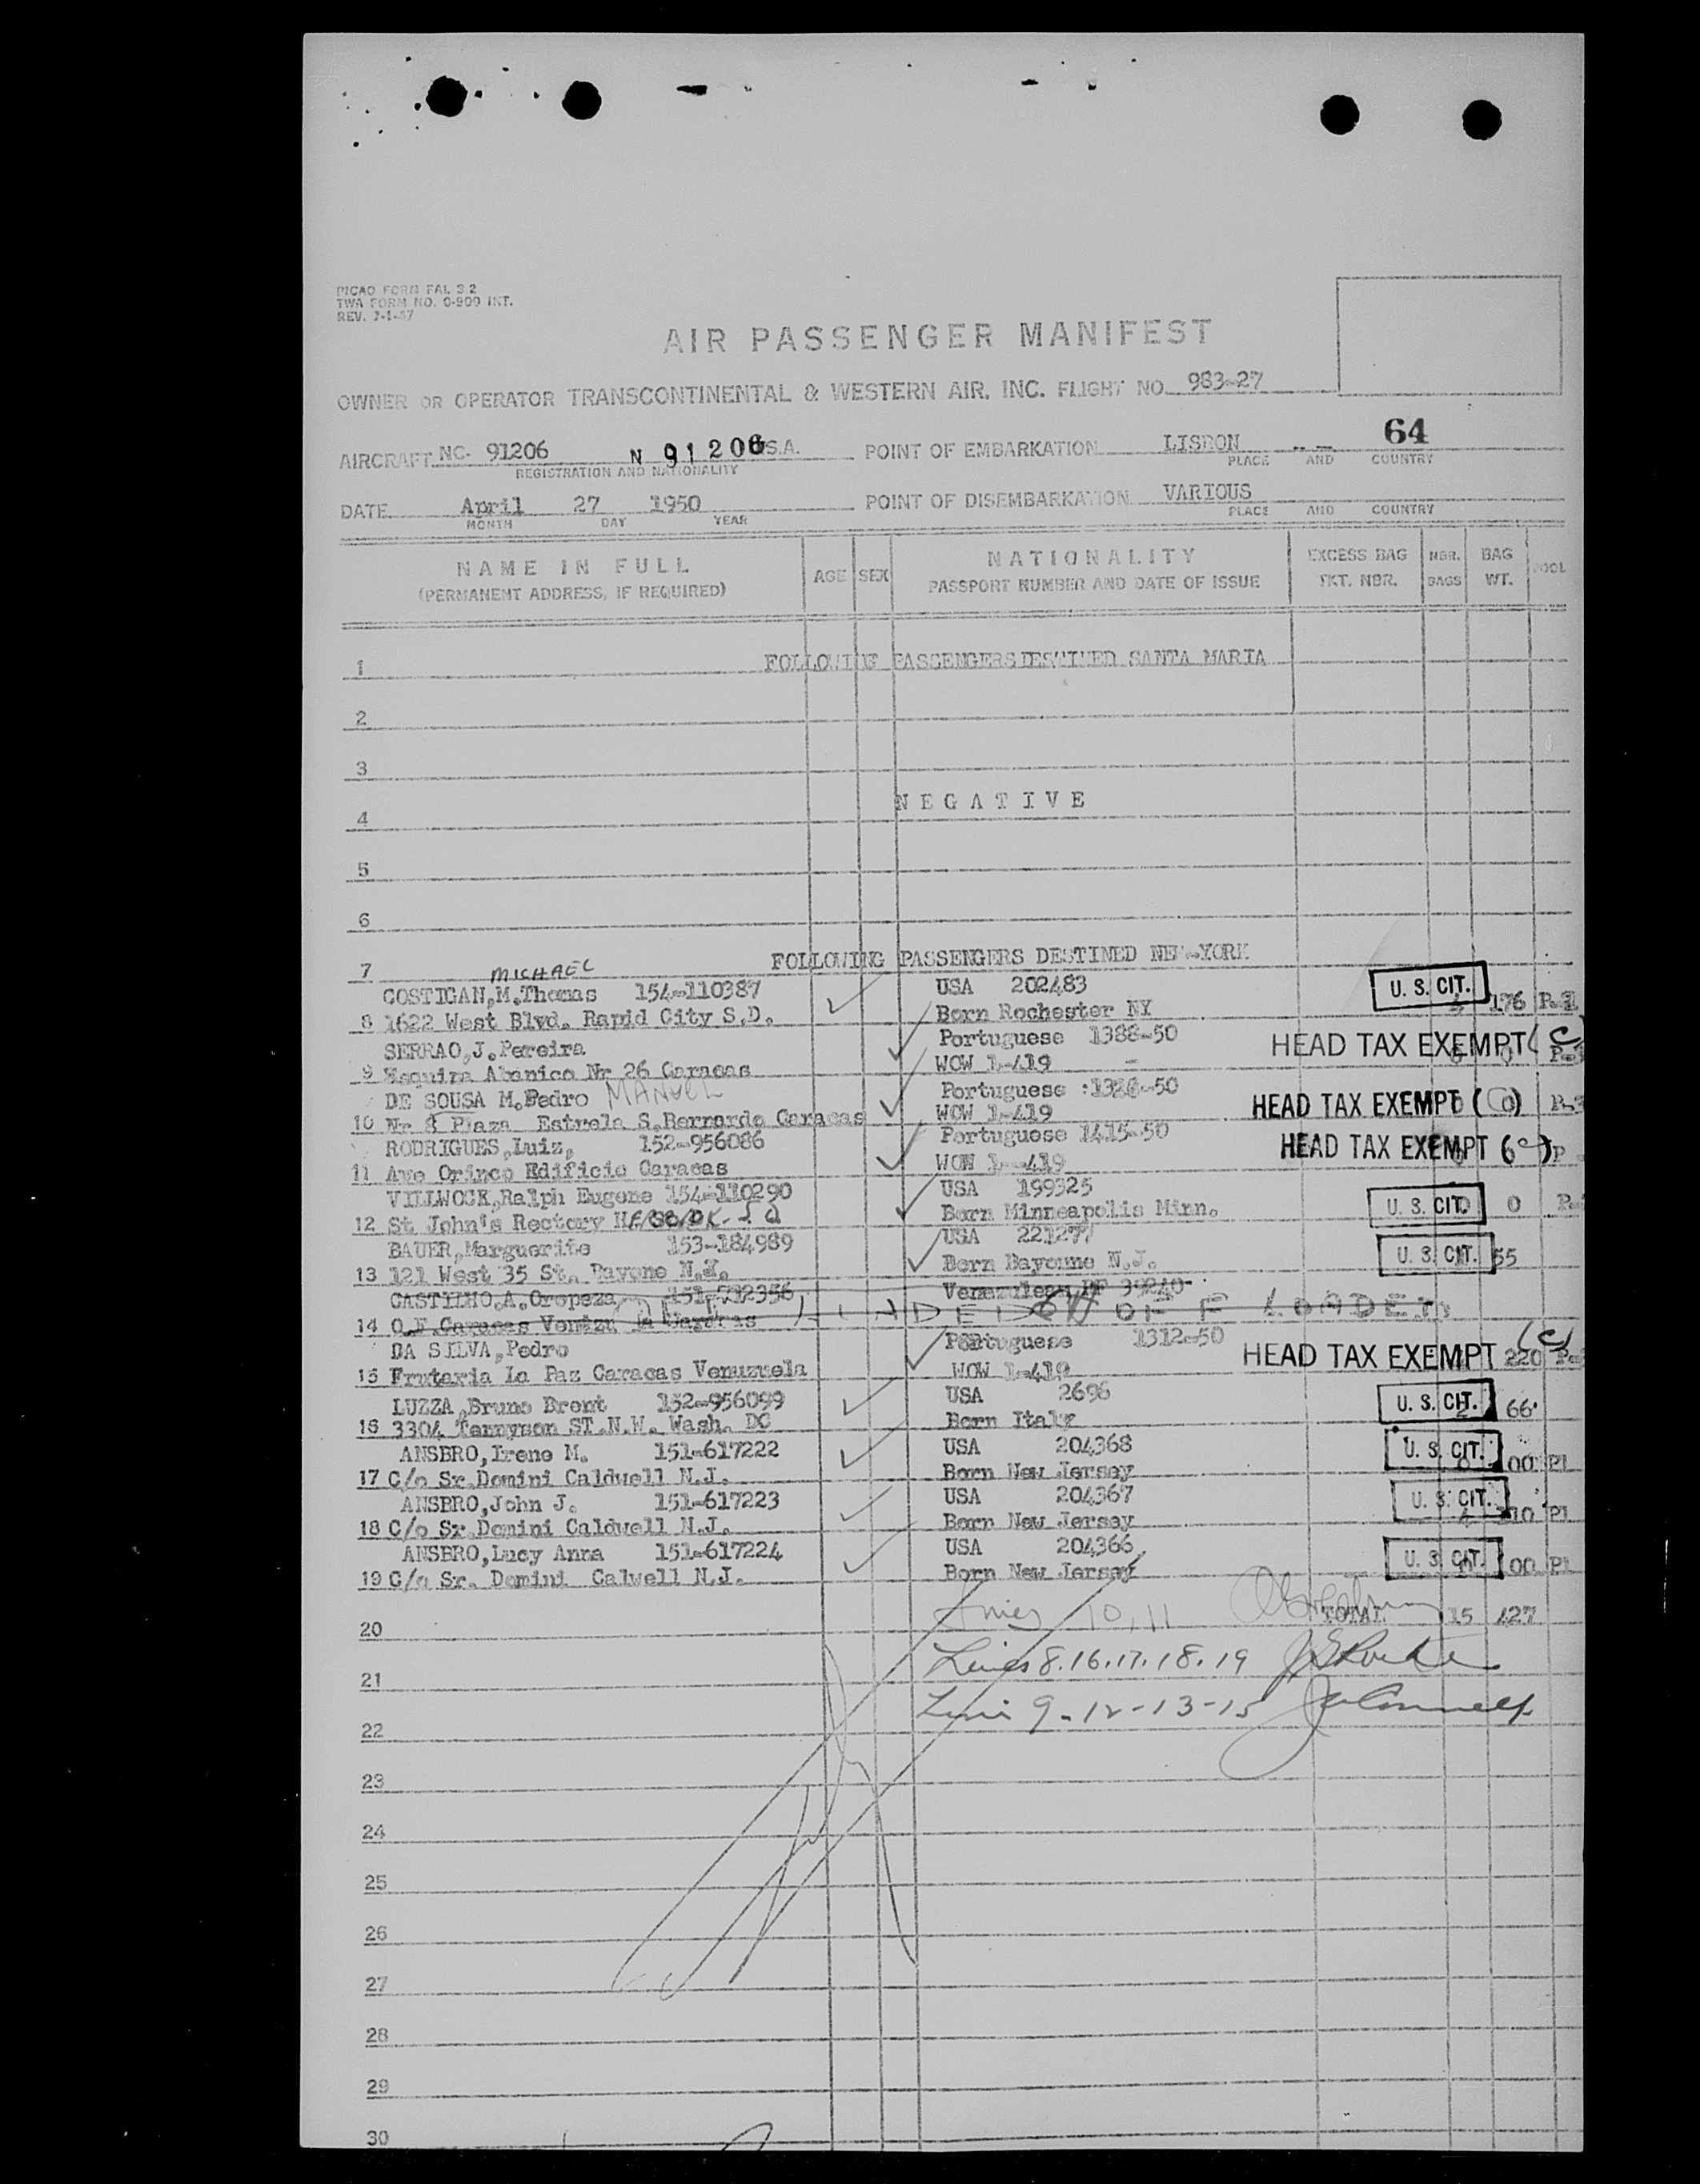 PICAO FORM FAL 3.2
TWA FORM NO. O-909 INT.
REV. 7-1-47
AIR PASSENGER MANIFEST
OWNER OR OPERATOR TRANSCONTINENTAL & WESTERN AIR. INC. FLIGHT NO. 983-27
64
AIRCRAFT NC- 91206 N 91206 U.S.A. POINT OF EMBARKATION LISBON
REGISTRATION AND NATIONALITY PLACE AND COUNTRY
DATE April 27 1950 POINT OF DISEMBARKATION VARIOUS
MONTH DAY YEAR PLACE AND COUNTRY
NAME IN FULL AGE SEX NATIONALITY EXCESS BAG NBR. BAG POOL
(PERMANENT ADDRESS, IF REQUIRED) PASSPORT NUMBER AND DATE OF ISSUE TKT. NBR. BAGS WT.
1 FOLLOWING PASSENGERS DESTINED SANTA MARIA
2
3
4 NEGATIVE
5
6
7 FOLLOWING PASSENGERS DESTINED NEW-YORK
MICHAEL
COSTIGAN,M.Thomas 154-110387 USA 202483 U. S. CIT. 176
8 1622 West Blvd. Rapid City S.D. Born Rochester NY
SERRAO,J.Pereira Portuguese 1388-50 HEAD TAX EXEMPT (C)
9 Esquira Abanico Nr 26 Caracas WOW 1-419
DE SOUSA M.Pedro MANUEL Portuguese :50 HEAD TAX EXEMPT (C)
10 Nr 8 Plaza Estrela S.Bernardo Caracas WOW 1-419
RODRIGUES,Luiz, 152-956086 Portuguese 1415-50 HEAD TAX EXEMPT (C)
11 Ave Orinco Edificio Caracas WOW 1-419
VILLWOCK,Ralph Eugene 154-110290 USA 199325 U. S. CIT. 0
12 St John's Rectory Born Minneapolis Minn.
BAUER,Marguerite 153-184989 USA 221277 U. S. CIT. 55
13 121 West 35 St. Bayone N.J. Born Bayonne N.J.
CASTILHO,A.Oropeza, 151-712356 Venezulean PP 39240
14 Caracas OFF LOADED
DA SILVA,Pedro Portuguese 1312-50 HEAD TAX EXEMPT (C) 220
15 Frutaria La Paz Caracas Venuzuela WOW 1-419
LUZZA,Bruno Brent 152-956099 USA 2696 U. S. CIT. 66
16 3304 Tennyson ST.N.W. Wash. DC Born Italy
ANSBRO,Irene M. 151-617222 USA 204368 U. S. CIT. 00 P1
17 C/o Sr.Domini Caldwell N.J. Born New Jersey
ANSBRO,John J. 151-617223 USA 204367 U. S. CIT. 110 P1
18 C/o Sr.Domini Caldwell N.J. Born New Jersey
ANSBRO,Lucy Anna 151-617224 USA 204366 U. S. CIT. 00 P1
19 C/o Sr. Domini Calwell N.J. Born New Jersey
20 Lines 10,11 TOTAL 15 427
21 Lines 8.16.17.18.19
22 Line 9-12-13-15
23
24
25
26
27
28
29
30